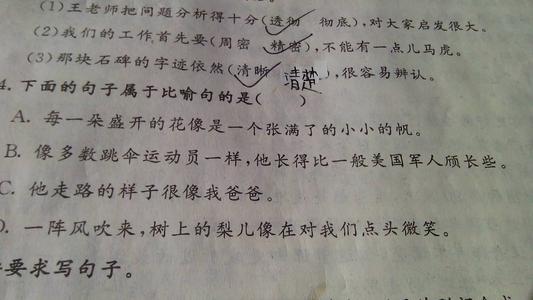 (1)王老师把问题分析得十分(透彻 彻底),对大家启发很大。
(2)我们的工作首先要(周密 精密),不能有一点儿马虎。
(3)那块石碑的字迹依然(清晰 清楚),很容易辨认。
4. 下面的句子属于比喻句的是( )
A. 每一朵盛开的花像是一个张满了的小小的帆。
B. 像多数跳伞运动员一样,他长得比一般美国军人颀长些。
C. 他走路的样子很像我爸爸。
D. 一阵风吹来,树上的梨儿像在对我们点头微笑。
要求写句子。